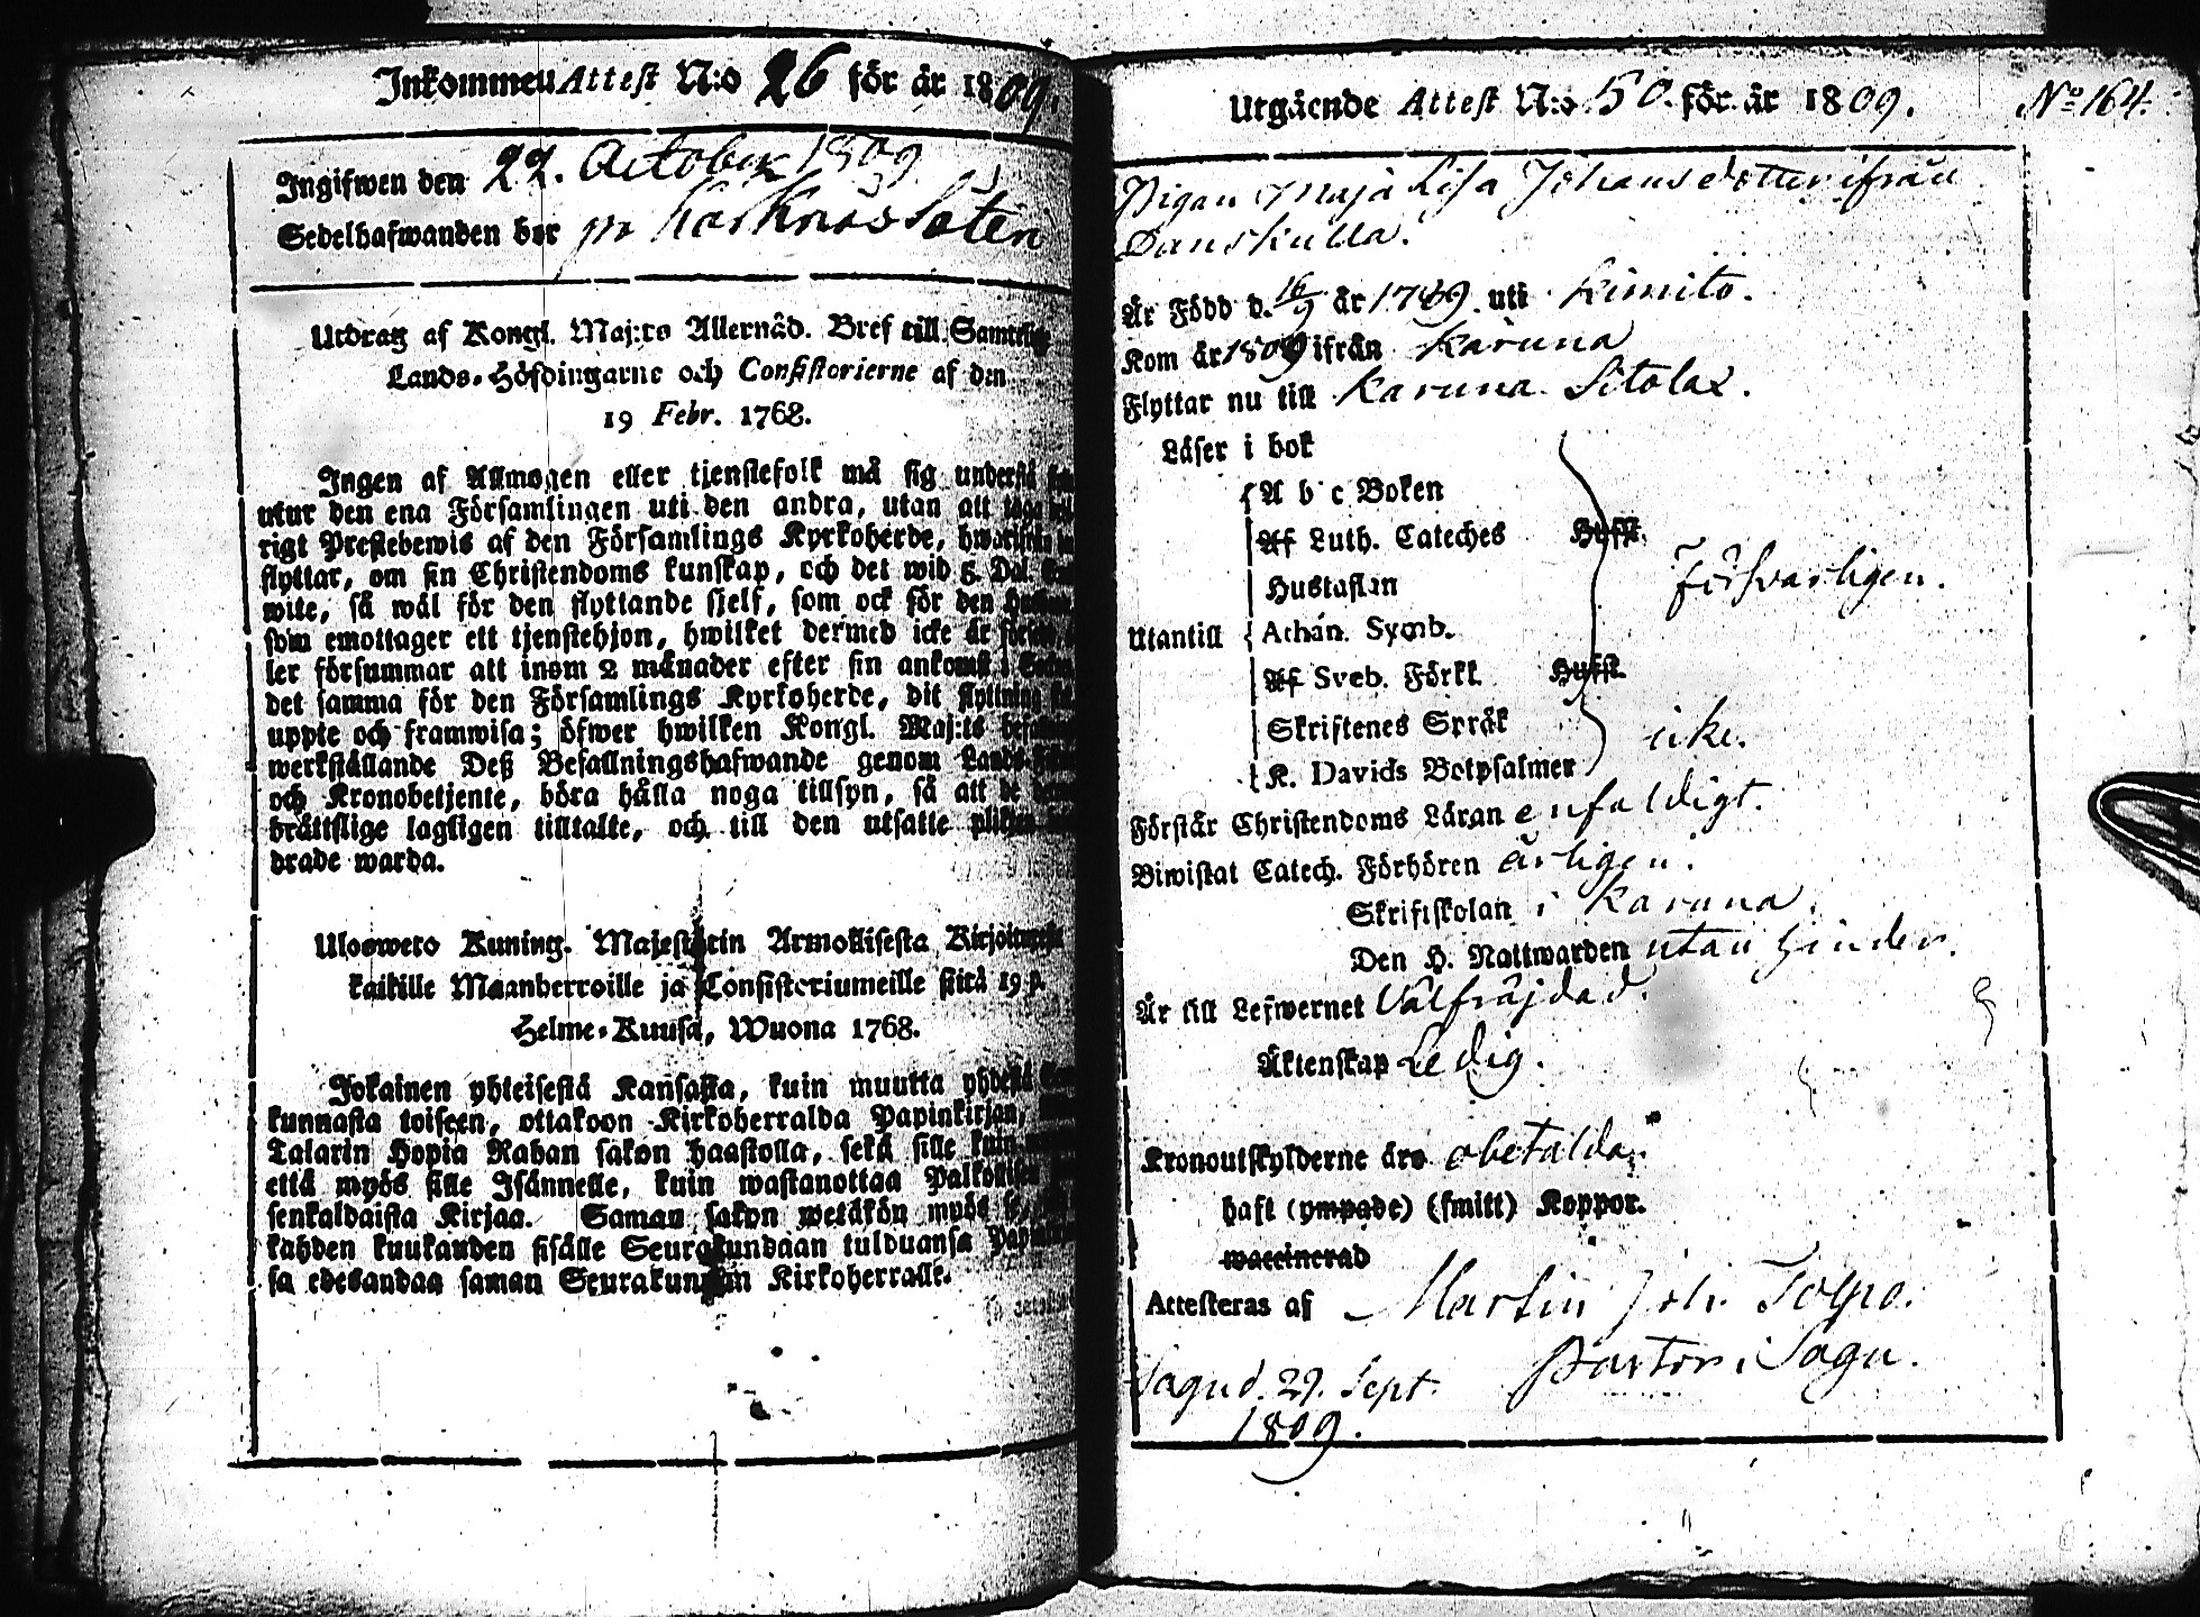 Inkommen Attest N:o 26 för år 1809.
Ingifwen den 22. October 1809
Sedelhafwanden bor på
Utdrag af Kongl. Maj:ts Allernåd. Bref till Samtelige
Lands-Höfdingarne och Consistorierne af den
19 Febr. 1768.
Ingen af Allmogen eller tjenstefolk må sig understå
utur den ena Församlingen uti den andra, utan att taga
rigt Prestebewis af den Församlings Kyrkoherde, hwarifrån
flyttar, om sin Christendoms kunskap, och det wid 5. Dal.
wite, så wäl för den flyttande sjelf, som ock för den
som emottager ett tjenstehjon, hwilket dermed icke är
ler försummar att inom 2 månader efter sin ankomst i
det samma för den Församlings Kyrkoherde, dit flyttning
uppte och framwisa; öfwer hwilken Kongl. Maj:ts
werkställande Deß Befallningshafwande genom Lands-
och Kronobetjente, böra hålla noga tillsyn, så att de
brättslige lagligen tilltalte, och till den utsatte plikten
drade warda.
Uloswero Kuning. Majestetin Armollisesta Kirjoituxesta
kaikille Maanherroille ja Consistoriumeille siitä 19 p.
Helme-Kuusa, Wuona 1768.
Jokainen yhteisestä Kansasta, kuin muutta yhdestä
kunnasta toiseen, ottakoon Kirkoherralda Papinkirjan,
Talarin Hopia Rahan sakon haastolla, sekä sille kuin
että myös sille Isännelle, kuin wastanottaa Palkollisen
senkaldaista Kirjaa. Saman sakon wetäkön myös se,
kahden kuukauden sisälle Seurakundaan tulduansa
sa edesandaa saman Seurakunnan Kirkoherralle.
Utgående Attest N:o 50. för år 1809. No 164.
Pigan Maja Lisa Johansdotter ifrån
Danskulla.
Är Född d. 16/9 år 1789. uti Kimito.
Kom år 1809 ifrån Karuna
Flyttar nu till Karuna Sitolax.
Läser i bok
A b c Boken
Af Luth. Cateches Hufst.
Hustaflan Försvarligen.
Utantill Athan. Symb.
Af Sveb. Förkl. Hufst.
Skriftenes Språk icke.
K. Davids Botpsalmer
Förstår Christendoms Läran enfaldigt.
Biwistat Catech. Förhören årligen.
Skriftskolan i Karuna.
Den H. Nattwarden utan hinder.
Är till Lefwernet Välfräjdad.
Äktenskap Ledig.
Kronoutskylderne äro obetalda.
haft (ympade) (smitt) Koppor.
waccinerad
Attesteras af Martin Joh. Tolpo.
Pastor i Sagu.
Sagu d. 29. Sept.
1809.